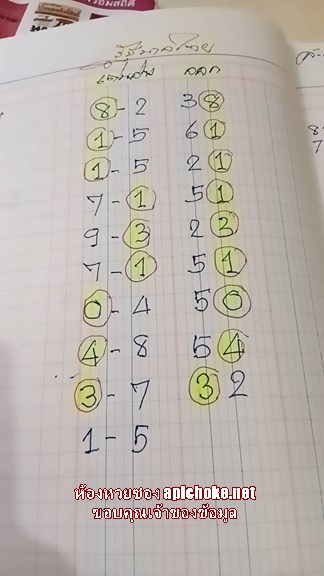 เด่นล่าง ออก
8-2 38
1-5 61
1-5 21
7-1 51
9-3 23
7-1 51
0-4 50
4-8 54
3-7 32
1-5
8
7
ห้องหวยซอง apichoke.net
ขอบคุณเจ้าของข้อมูล